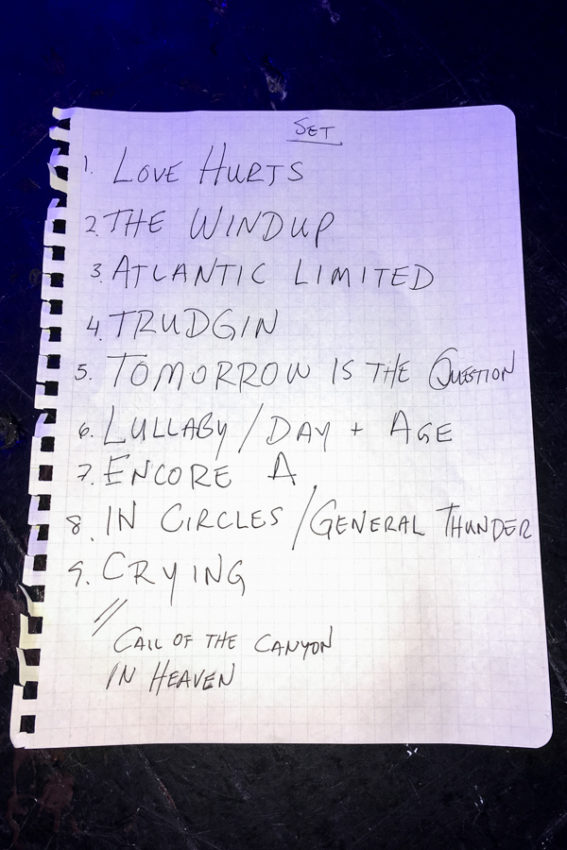 SET
1. LOVE HURTS
2. THE WINDUP
3. ATLANTIC LIMITED
4. TRUDGIN
5. TOMORROW IS THE QUESTION
6. LULLABY / DAY + AGE
7. ENCORE A
8. IN CIRCLES / GENERAL THUNDER
9. CRYING
//
CALL OF THE CANYON
IN HEAVEN